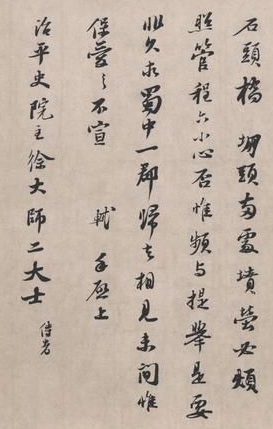 石頭橋堋頭兩處墳塋必煩
照管程六小心否惟頻與提舉是要
非久求蜀中一郡歸去相見未間惟
保愛之不宣 軾手啟上
治平史院主徐大師二大士 侍者